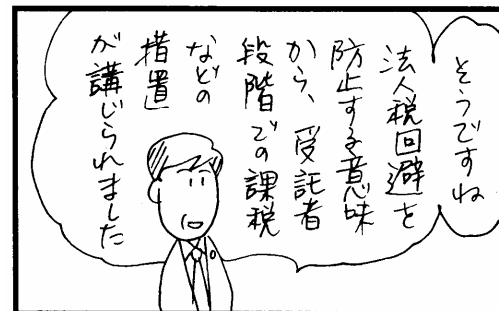 そうですね
法人税回避を
防止する意味
から、受託者
段階での課税
などの
措置
が講じられました